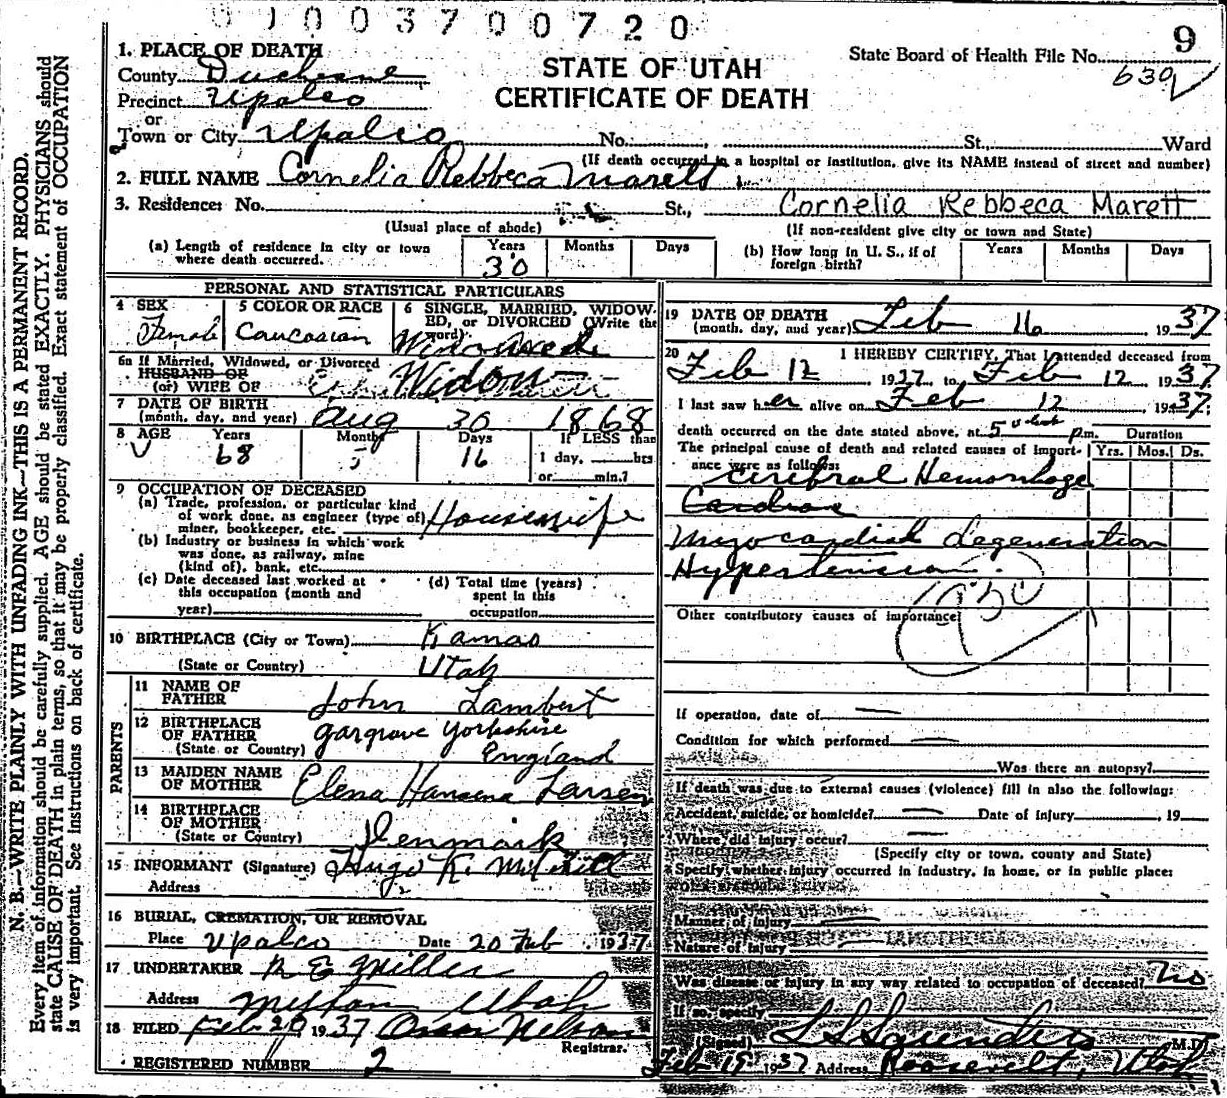 0 0 0 3 7 0 0 7 2 0
9
1. PLACE OF DEATH
County Duchesne
Precinct Upalco
or
Town or City Upalco No. St., Ward
STATE OF UTAH
CERTIFICATE OF DEATH
State Board of Health File No.
630
(If death occurred in a hospital or institution, give its NAME instead of street and number)
2. FULL NAME Cornelia Rebbeca Marett
3. Residence: No. St., Cornelia Rebbeca Marett
(Usual place of abode) (If non-resident give city or town and State)
(a) Length of residence in city or town where death occurred. Years 30 Months Days
(b) How long in U. S., if of foreign birth? Years Months Days
PERSONAL AND STATISTICAL PARTICULARS
4 SEX Female
5 COLOR OR RACE Caucasian
6 SINGLE, MARRIED, WIDOWED, or DIVORCED (Write the word) Widowed
6a If Married, Widowed, or Divorced
HUSBAND OF
(or) WIFE OF Widow
7 DATE OF BIRTH
(month, day, and year) Aug 30 1868
8 AGE Years 68 Months 5 Days 16 If LESS than
1 day, hrs
or min.?
9 OCCUPATION OF DECEASED
(a) Trade, profession, or particular kind
of work done, as engineer (type of)
miner, bookkeeper, etc. Housewife
(b) Industry or business in which work
was done, as railway, mine
(kind of), bank, etc.
(c) Date deceased last worked at
this occupation (month and
year)
(d) Total time (years)
spent in this
occupation
10 BIRTHPLACE (City or Town) Kamas
(State or Country) Utah
PARENTS
11 NAME OF
FATHER John Lambert
12 BIRTHPLACE
OF FATHER Gargrave Yorkshire
(State or Country) England
13 MAIDEN NAME
OF MOTHER Elena Hansena Larsen
14 BIRTHPLACE
OF MOTHER
(State or Country) Denmark
15 INFORMANT (Signature) Hugo K. Mitchell
Address
16 BURIAL, CREMATION, OR REMOVAL
Place Upalco Date 20 Feb, 1937
17 UNDERTAKER R E Miller
Address Myton Utah
18 FILED Feb 20 1937 Oscar Nelson
Registrar.
REGISTERED NUMBER 2
19 DATE OF DEATH
(month, day, and year) Feb 16 1937
20 I HEREBY CERTIFY, That I attended deceased from
Feb 12 1937 to Feb 12 1937
I last saw her alive on Feb 12, 1937;
death occurred on the date stated above, at 5 o'clock p.m. Duration
The principal cause of death and related causes of importance were as follows: Yrs. Mos. Ds.
Cerebral Hemorrhage
Cardiac
Myocardial degeneration
Hypertension.
Other contributory causes of importance:
If operation, date of
Condition for which performed
Was there an autopsy?
If death was due to external causes (violence) fill in also the following:
Accident, suicide, or homicide? Date of injury , 19
Where did injury occur?
(Specify city or town, county and State)
Specify whether injury occurred in industry, in home, or in public place:
Manner of injury
Nature of injury
Was disease or injury in any way related to occupation of deceased? No
If so, specify
(Signed) L S Saunders M.D.
Feb 19 1937 Address Roosevelt, Utah
N. B.—WRITE PLAINLY WITH UNFADING INK—THIS IS A PERMANENT RECORD.
Every item of information should be carefully supplied. AGE should be stated EXACTLY. PHYSICIANS should
state CAUSE OF DEATH in plain terms, so that it may be properly classified. Exact statement of OCCUPATION
is very important. See instructions on back of certificate.